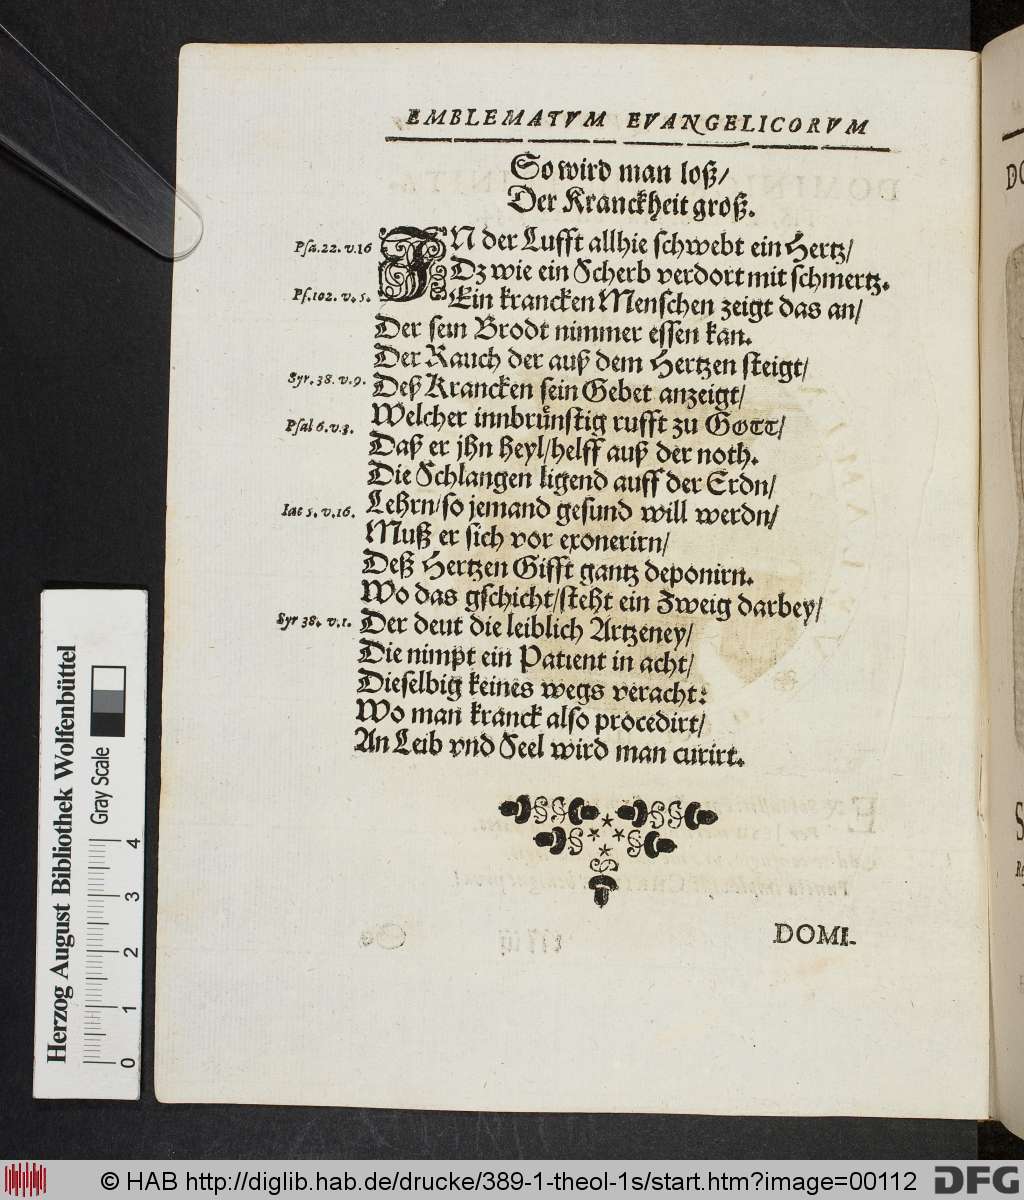 EMBLEMATVM EVANGELICORVM
So wird man loß/
Der Kranckheit groß.
Psa.22. v.16
IN der Lufft allhie schwebt ein Hertz/
Dz wie ein Scherb verdort mit schmertz.
Ps.102. v.5.
Ein krancken Menschen zeigt das an/
Der sein Brodt nimmer essen kan.
Der Rauch der auß dem Hertzen steigt/
Syr.38. v.9.
Deß Krancken sein Gebet anzeigt/
Welcher innbrünstig rufft zu GOTT/
Psal 6. v.3.
Daß er jhn heyl/helff auß der noth.
Die Schlangen ligend auff der Erdn/
Iac 5. v.16.
Lehrn/so jemand gesund will werdn/
Muß er sich vor exonerirn/
Deß Hertzen Gifft gantz deponirn.
Wo das gschicht/steht ein Zweig darbey/
Syr 38. v.1.
Der deut die leiblich Artzeney/
Die nimpt ein Patient in acht/
Dieselbig keines wegs veracht:
Wo man kranck also procedirt/
An Leib vnd Seel wird man curirt.
DOMI-
Herzog August Bibliothek Wolfenbüttel
Gray Scale
0 1 2 3 4
© HAB http://diglib.hab.de/drucke/389-1-theol-1s/start.htm?image=00112
DFG